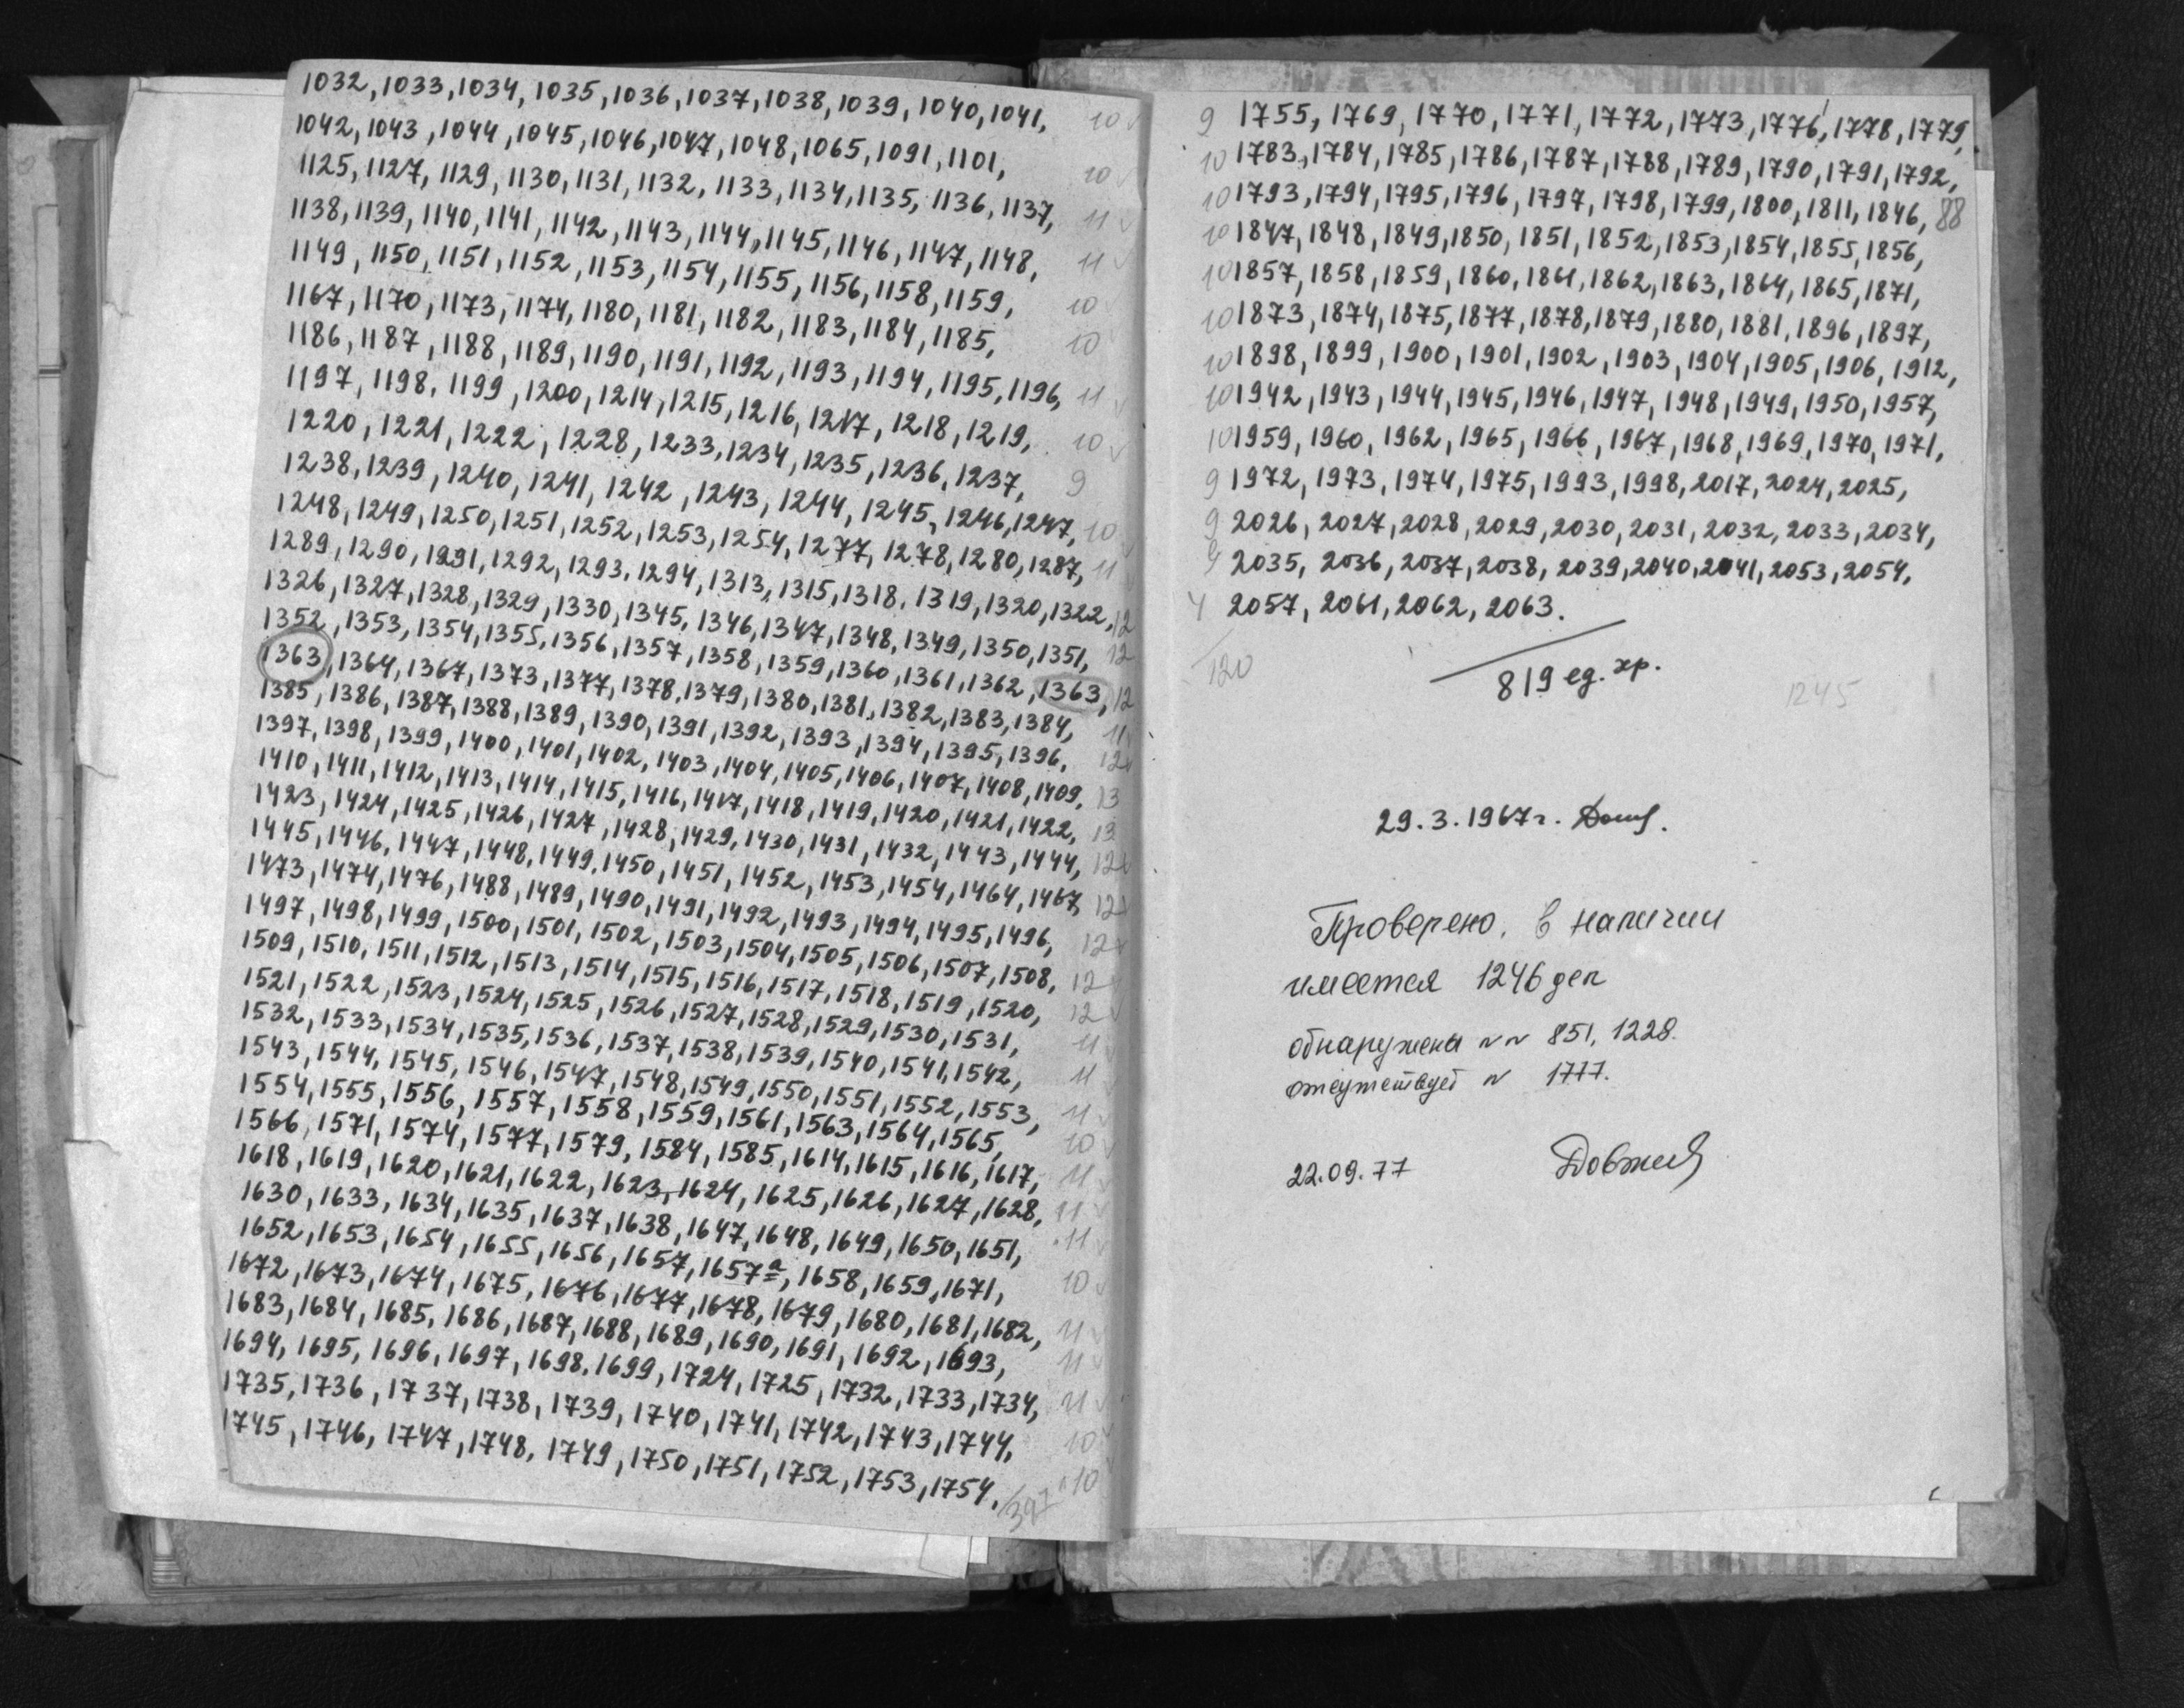 1032, 1033, 1034, 1035, 1036, 1037, 1038, 1039, 1040, 1041, 10
1042, 1043, 1044, 1045, 1046, 1047, 1048, 1065, 1091, 1101, 10
1125, 1127, 1129, 1130, 1131, 1132, 1133, 1134, 1135, 1136, 1137, 11
1138, 1139, 1140, 1141, 1142, 1143, 1144, 1145, 1146, 1147, 1148, 11
1149, 1150, 1151, 1152, 1153, 1154, 1155, 1156, 1158, 1159, 10
1167, 1170, 1173, 1174, 1180, 1181, 1182, 1183, 1184, 1185, 10
1186, 1187, 1188, 1189, 1190, 1191, 1192, 1193, 1194, 1195, 1196, 11
1197, 1198, 1199, 1200, 1214, 1215, 1216, 1217, 1218, 1219, 10
1220, 1221, 1222, 1228, 1233, 1234, 1235, 1236, 1237, 9
1238, 1239, 1240, 1241, 1242, 1243, 1244, 1245, 1246, 1247, 10
1248, 1249, 1250, 1251, 1252, 1253, 1254, 1277, 1278, 1280, 1287, 11
1289, 1290, 1291, 1292, 1293, 1294, 1313, 1315, 1318, 1319, 1320, 1322, 12
1326, 1327, 1328, 1329, 1330, 1345, 1346, 1347, 1348, 1349, 1350, 1351, 12
1352, 1353, 1354, 1355, 1356, 1357, 1358, 1359, 1360, 1361, 1362, 1363, 12
1363, 1364, 1367, 1373, 1377, 1378, 1379, 1380, 1381, 1382, 1383, 1384, 11
1385, 1386, 1387, 1388, 1389, 1390, 1391, 1392, 1393, 1394, 1395, 1396, 12
1397, 1398, 1399, 1400, 1401, 1402, 1403, 1404, 1405, 1406, 1407, 1408, 1409, 13
1410, 1411, 1412, 1413, 1414, 1415, 1416, 1417, 1418, 1419, 1420, 1421, 1422, 13
1423, 1424, 1425, 1426, 1427, 1428, 1429, 1430, 1431, 1432, 1443, 1444, 12
1445, 1446, 1447, 1448, 1449, 1450, 1451, 1452, 1453, 1454, 1464, 1467, 12
1473, 1474, 1476, 1488, 1489, 1490, 1491, 1492, 1493, 1494, 1495, 1496, 12
1497, 1498, 1499, 1500, 1501, 1502, 1503, 1504, 1505, 1506, 1507, 1508, 12
1509, 1510, 1511, 1512, 1513, 1514, 1515, 1516, 1517, 1518, 1519, 1520, 12
1521, 1522, 1523, 1524, 1525, 1526, 1527, 1528, 1529, 1530, 1531, 11
1532, 1533, 1534, 1535, 1536, 1537, 1538, 1539, 1540, 1541, 1542, 11
1543, 1544, 1545, 1546, 1547, 1548, 1549, 1550, 1551, 1552, 1553, 11
1554, 1555, 1556, 1557, 1558, 1559, 1561, 1563, 1564, 1565, 10
1566, 1571, 1574, 1577, 1579, 1584, 1585, 1614, 1615, 1616, 1617, 11
1618, 1619, 1620, 1621, 1622, 1623, 1624, 1625, 1626, 1627, 1628, 11
1630, 1633, 1634, 1635, 1637, 1638, 1647, 1648, 1649, 1650, 1651, 11
1652, 1653, 1654, 1655, 1656, 1657, 1657а, 1658, 1659, 1671, 10
1672, 1673, 1674, 1675, 1676, 1677, 1678, 1679, 1680, 1681, 1682, 11
1683, 1684, 1685, 1686, 1687, 1688, 1689, 1690, 1691, 1692, 1693, 11
1694, 1695, 1696, 1697, 1698, 1699, 1724, 1725, 1732, 1733, 1734, 11
1735, 1736, 1737, 1738, 1739, 1740, 1741, 1742, 1743, 1744, 10
1745, 1746, 1747, 1748, 1749, 1750, 1751, 1752, 1753, 1754. 10
397
9 1755, 1769, 1770, 1771, 1772, 1773, 1776, 1778, 1779,
10 1783, 1784, 1785, 1786, 1787, 1788, 1789, 1790, 1791, 1792,
10 1793, 1794, 1795, 1796, 1797, 1798, 1799, 1800, 1811, 1846, 88
10 1847, 1848, 1849, 1850, 1851, 1852, 1853, 1854, 1855, 1856,
10 1857, 1858, 1859, 1860, 1861, 1862, 1863, 1864, 1865, 1871,
10 1873, 1874, 1875, 1877, 1878, 1879, 1880, 1881, 1896, 1897,
10 1898, 1899, 1900, 1901, 1902, 1903, 1904, 1905, 1906, 1912,
10 1942, 1943, 1944, 1945, 1946, 1947, 1948, 1949, 1950, 1957,
10 1959, 1960, 1962, 1965, 1966, 1967, 1968, 1969, 1970, 1971,
9 1972, 1973, 1974, 1975, 1993, 1998, 2017, 2024, 2025,
9 2026, 2027, 2028, 2029, 2030, 2031, 2032, 2033, 2034,
9 2035, 2036, 2037, 2038, 2039, 2040, 2041, 2053, 2054,
4 2057, 2061, 2062, 2063.
120
819 ед. хр.
1245
29.3.1967г.
Проверено. В наличии
имеется 1246 дел
обнаружены NN 851, 1228.
отсутствует N 1777.
22.09.77